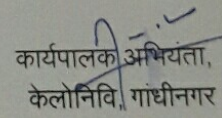 कार्यपालक अभियंता,
केलोनिवि, गांधीनगर